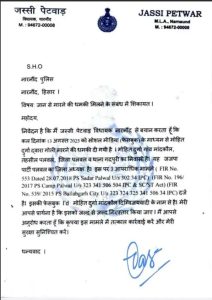 जस्सी पेटवाड़
विधायक, नारनौंद
M. : 94672-00008
JASSI PETWAR
M.L.A., Narnaund
M. : 94672-00008
S.H.O
नारनौंद पुलिस
नारनौंद, हिसार ।
विषय: जान से मारने की धमकी मिलने के संबंध में शिकायत ।
महोदय,
निवेदन है कि मैं जस्सी पेटवाड़ विधायक नारनौंद से बयान करता हूँ कि
कल दिनांक 13 अगस्त 2025 को सोशल मीडिया (फेसबुक) के माध्यम से मोहित
दुर्गा द्वारा गोली मारने की धमकी दी गयी है । मोहित दुर्गा गांव मांदकौल,
तहसील पलवल, जिला पलवल व थाना गदपुरी का निवासी है। यह
पार्टी पलवल का जिला अध्यक्ष था । इस पर 3 आपराधिक मामले ( FIR No.
553 Dated 28.7.2018 PS Sadar Palwal U/s 302 34 IPC) (FIR No. 196/
2017 PS Camp Palwal U/s 323 341 506 504 IPC & SC/ST Act) (FIR
No. 539/ 2015 PS Ballabgarh City U/s 323 341 34 506 325 IPC) दर्ज
है। इसकी फेसबुक I'd मोहित दुर्गा मांदकौल के नाम से है। मेरी
आपसे प्रार्थना है कि इसको जल्द से जल्द गिरफ्तार किया जाए । मैं आपसे
अनुरोध करता हूँ कि कृपया इस मामले में तत्काल कार्रवाई करें और मेरी
सुरक्षा सुनिश्चित करें ।
धन्यवाद ।